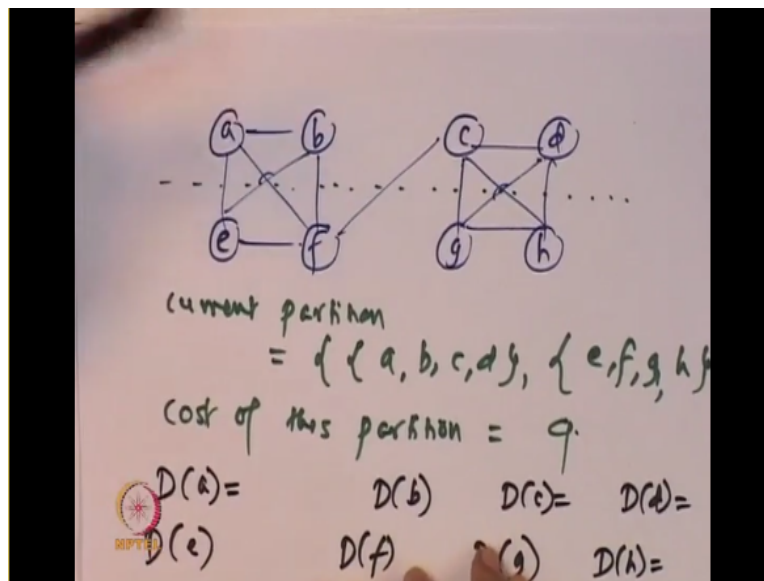 a b c d
e f g h
current partition
= { { a, b, c, d }, { e, f, g, h }
cost of this partition = 9.
D(a)= D(b) D(c)= D(d)=
D(e) D(f) D(g) D(h)=
NPTEL